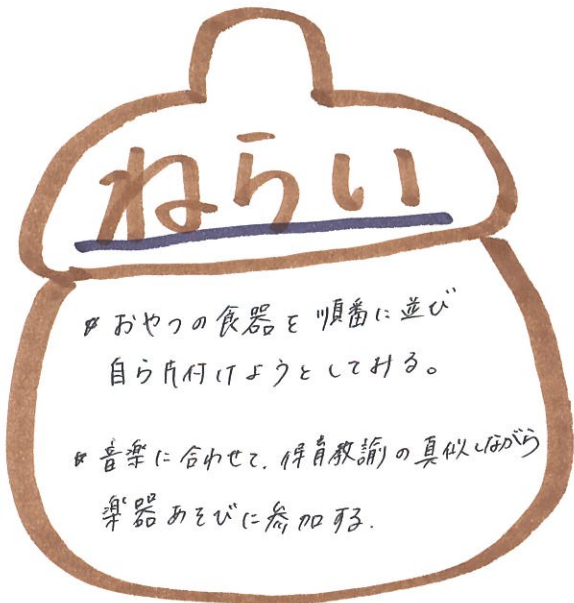 ねらい
☆ おやつの食器を順番に並び
自ら片付けようとしてみる。
☆ 音楽に合わせて、保育教諭の真似しながら
楽器あそびに参加する.